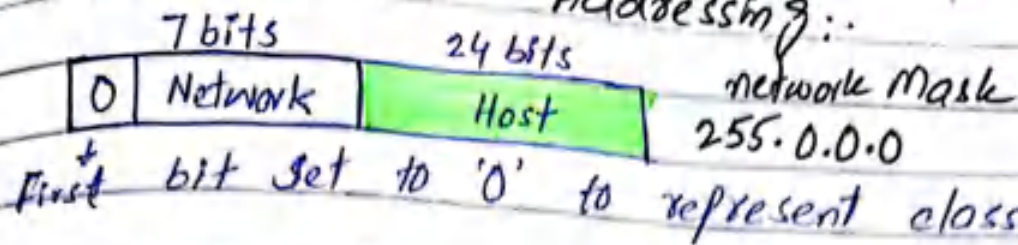 Addressing:.
7 bits 24 bits
0 Network Host network Mask
255.0.0.0
First bit set to '0' to represent class